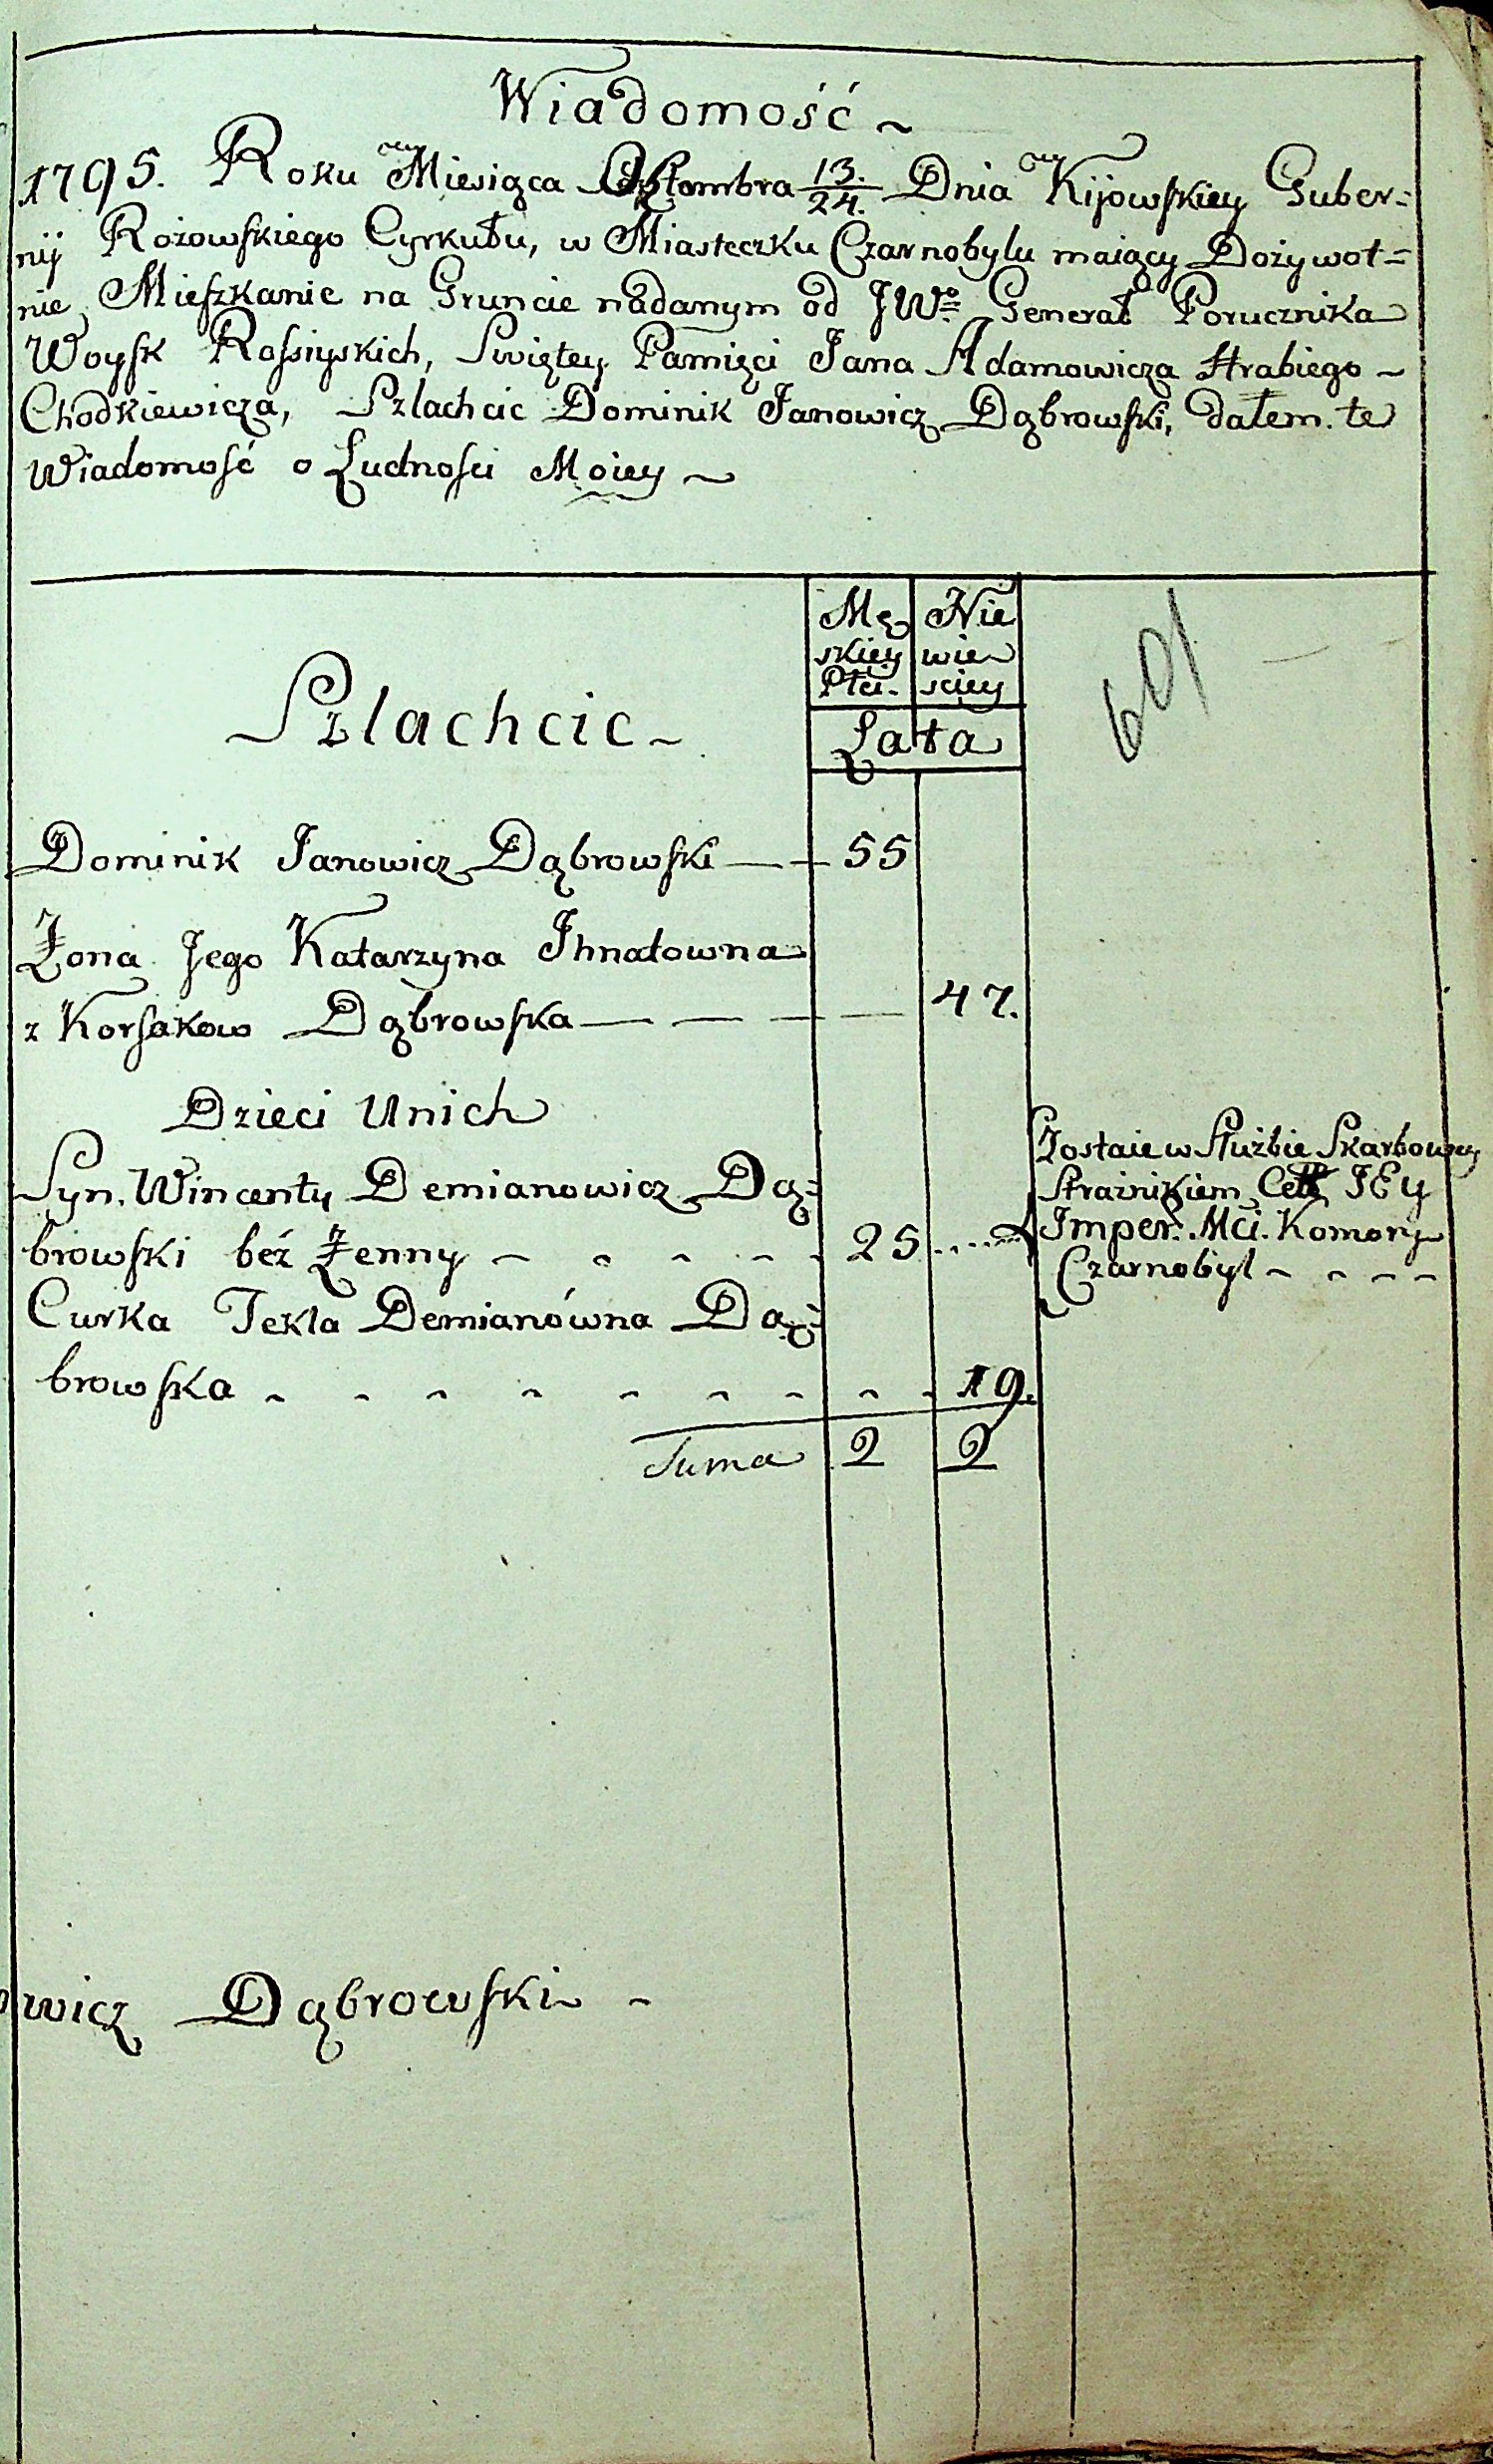 Wiadomość ~
1795. Roku Miesiąca Oktombra 13./24. Dnia Kijowskiey Guber=
nij Rożowskiego Cyrkułu, w Miasteczku Czarnobylu maiący Dożywot=
nie Mieszkanie na Gruncie nadanym od JWº Generał Porucznika
Woysk Rossiyskich, Swiętey Pamięci Jana Adamowicza Hrabiego ~
Chodkiewicza, Szlachcic Dominik Janowicz Dąbrowski, dałem te
Wiadomość o Ludności Moiey ~
Mę
skiey
Płci.
Nie
wie
sciey
601
Szlachcic ~
Lata
Dominik Janowicz Dąbrowski — 55
Żona Jego Katarzyna Ihnatowna
z Korsakow Dąbrowska — — — — 47.
Dzieci Unich
Syn. Wincenty Demianowicz Dą=
browski beź Żenny ~ ~ ~ ~ ~ 25
Zostaie w Służbie Skarbowey
Strażnikiem JEy
Imper. Mci. Komory
Czarnobyl ~ ~ ~ ~
Curka Tekla Demianówna Dą=
browska ~ ~ ~ ~ ~ ~ ~ ~ ~ 19.
Suma 2 2
wicz Dąbrowski ~